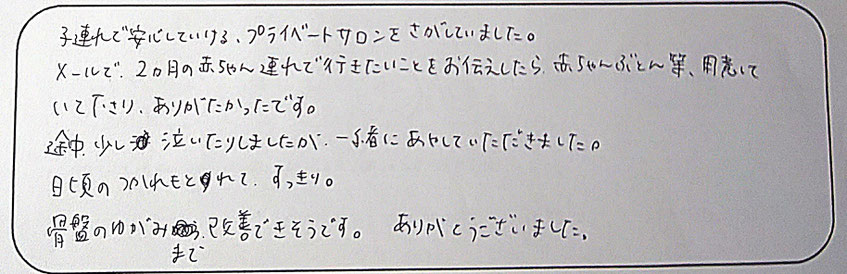 子連れで安心していける、プライベートサロンをさがしていました。
メールで、2ヵ月の赤ちゃん連れで行きたいことをお伝えしたら、赤ちゃんぶとん等、用意して
いて下さり、ありがたかったです。
途中、少し泣いたりしましたが、一緒にあやしていただきました。
日頃のつかれもとれて、すっきり。
骨盤のゆがみまで改善できそうです。 ありがとうございました。